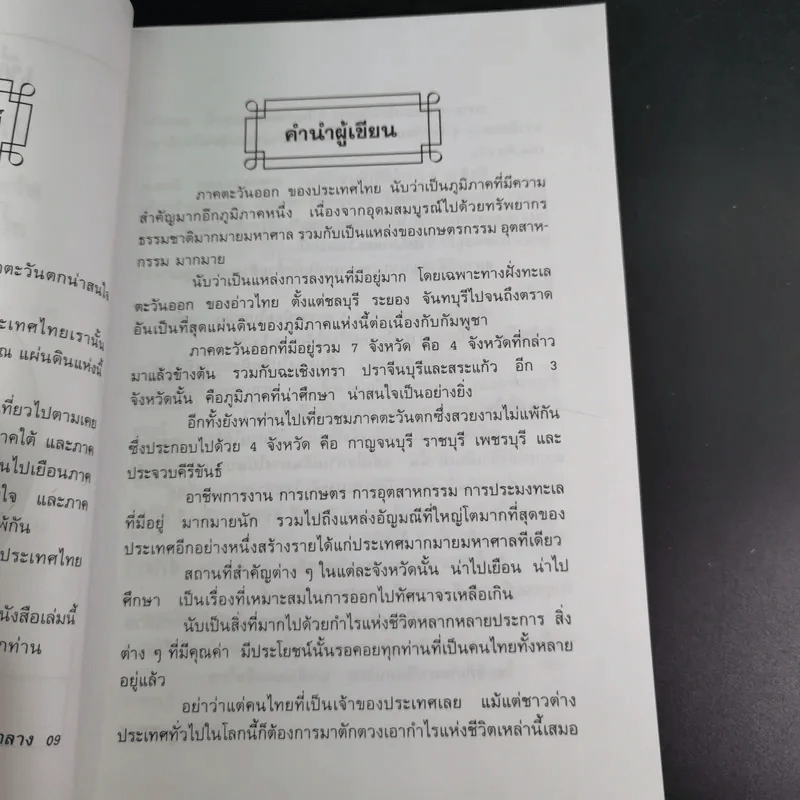 ตะวันตกน่าสนใจ
ประเทศไทยเรานั้น
ณ แผ่นดินแห่งนี้
เที่ยวไปตามเคย
ภาคใต้ และภาค
ไปเยือนภาค
และภาค
แพ้กัน
ประเทศไทย
หนังสือเล่มนี้
กท่าน
กลาง 09
คำนำผู้เขียน
ภาคตะวันออก ของประเทศไทย นับว่าเป็นภูมิภาคที่มีความ
สำคัญมากอีกภูมิภาคหนึ่ง เนื่องจากอุดมสมบูรณ์ไปด้วยทรัพยากร
ธรรมชาติมากมายมหาศาล รวมกับเป็นแหล่งของเกษตรกรรม อุตสาห-
กรรม มากมาย
นับว่าเป็นแหล่งการลงทุนที่มีอยู่มาก โดยเฉพาะทางฝั่งทะเล
ตะวันออก ของอ่าวไทย ตั้งแต่ชลบุรี ระยอง จันทบุรีไปจนถึงตราด
อันเป็นที่สุดแผ่นดินของภูมิภาคแห่งนี้ต่อเนื่องกับกัมพูชา
ภาคตะวันออกที่มีอยู่รวม 7 จังหวัด คือ 4 จังหวัดที่กล่าว
มาแล้วข้างต้น รวมกับฉะเชิงเทรา ปราจีนบุรีและสระแก้ว อีก 3
จังหวัดนั้น คือภูมิภาคที่น่าศึกษา น่าสนใจเป็นอย่างยิ่ง
อีกทั้งยังพาท่านไปเที่ยวชมภาคตะวันตกซึ่งสวยงามไม่แพ้กัน
ซึ่งประกอบไปด้วย 4 จังหวัด คือ กาญจนบุรี ราชบุรี เพชรบุรี และ
ประจวบคีรีขันธ์
อาชีพการงาน การเกษตร การอุตสาหกรรม การประมงทะเล
ที่มีอยู่ มากมายนัก รวมไปถึงแหล่งอัญมณีที่ใหญ่โตมากที่สุดของ
ประเทศอีกอย่างหนึ่งสร้างรายได้แก่ประเทศมากมายมหาศาลทีเดียว
สถานที่สำคัญต่าง ๆ ในแต่ละจังหวัดนั้น น่าไปเยือน น่าไป
ศึกษา เป็นเรื่องที่เหมาะสมในการออกไปทัศนาจรเหลือเกิน
นับเป็นสิ่งที่มากไปด้วยกำไรแห่งชีวิตหลากหลายประการ สิ่ง
ต่าง ๆ ที่มีคุณค่า มีประโยชน์นั้นรอคอยทุกท่านที่เป็นคนไทยทั้งหลาย
อยู่แล้ว
อย่าว่าแต่คนไทยที่เป็นเจ้าของประเทศเลย แม้แต่ชาวต่าง
ประเทศทั่วไปในโลกนี้ก็ต้องการมาตักตวงเอากำไรแห่งชีวิตเหล่านี้เสมอ